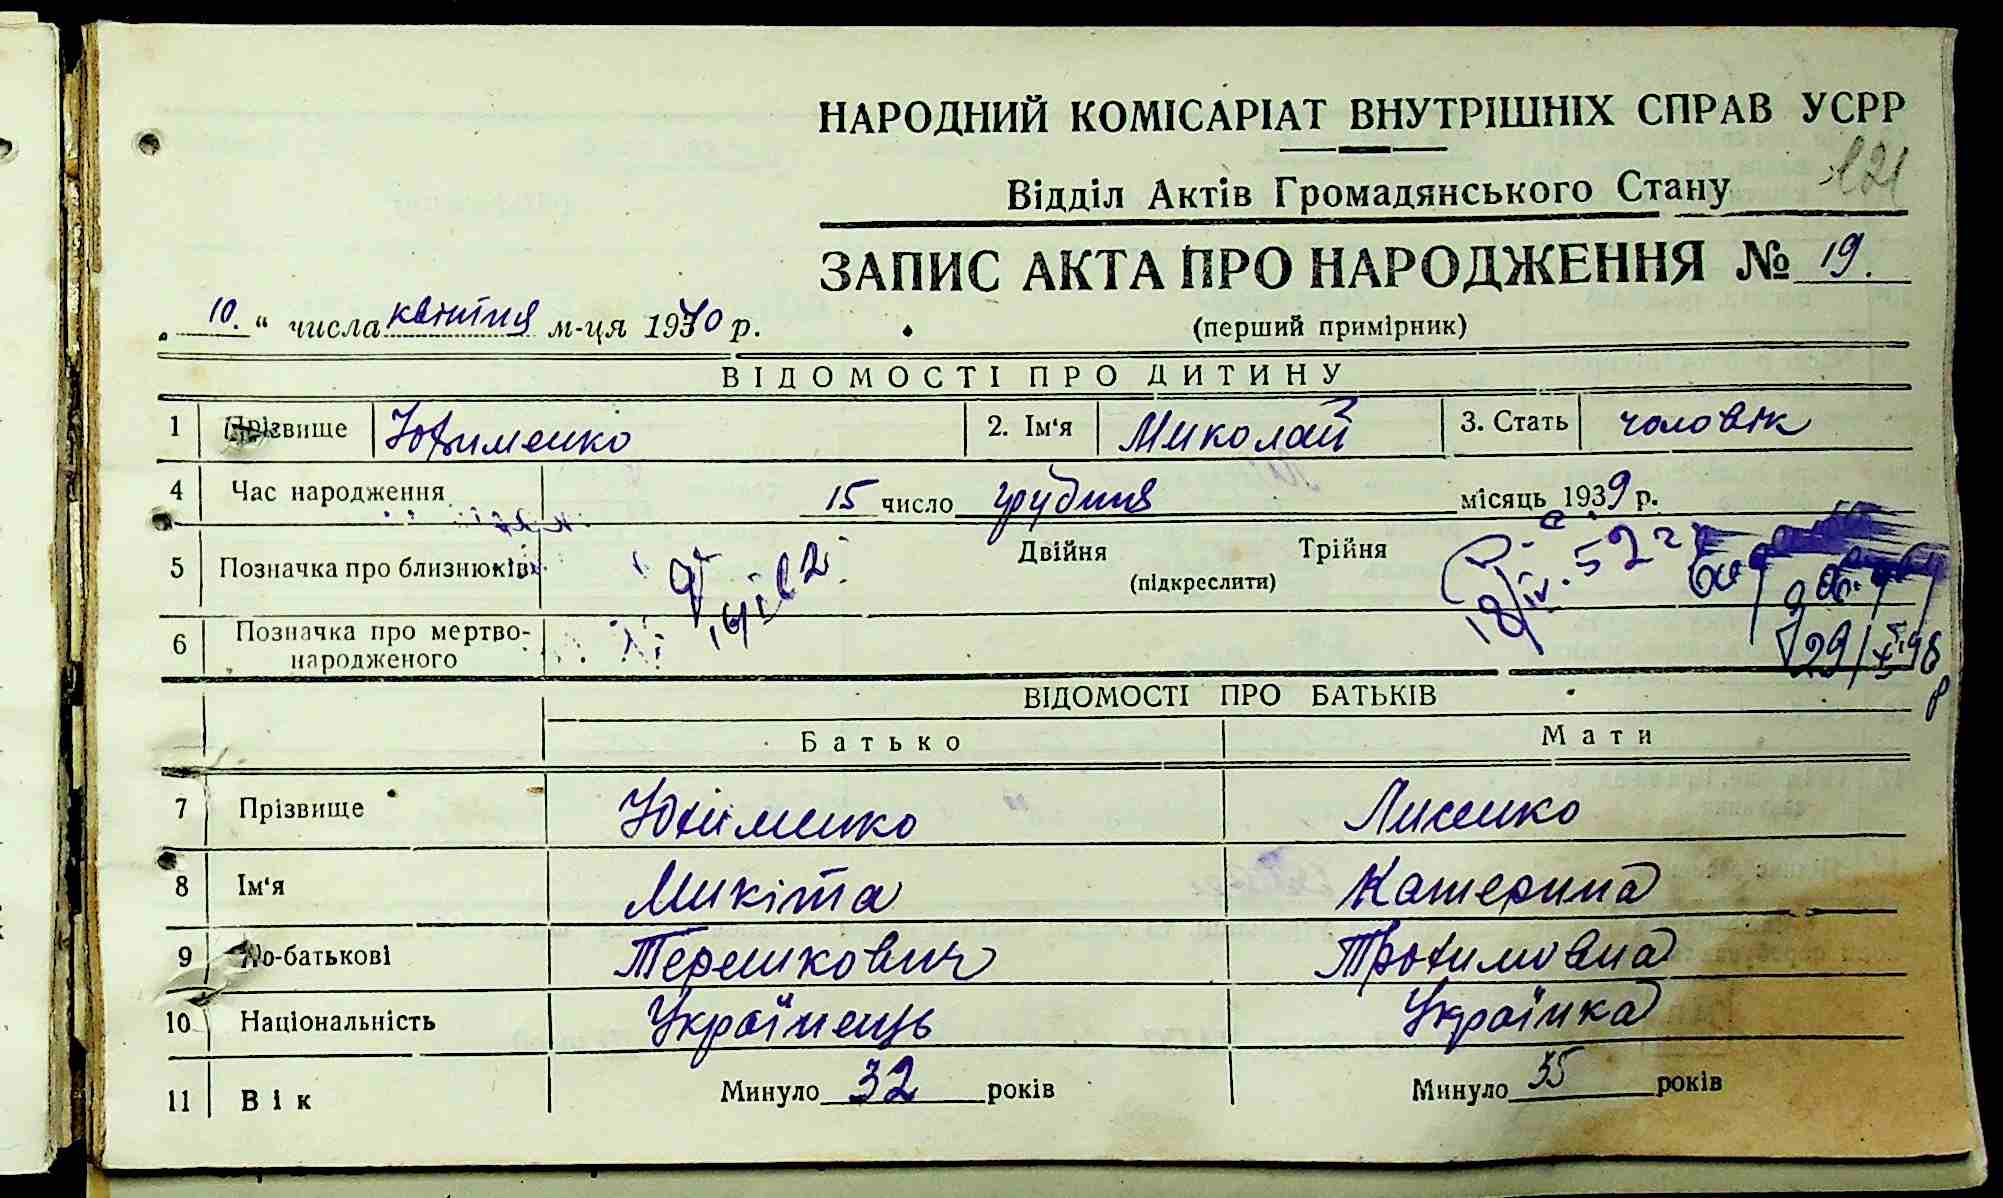 НАРОДНИЙ КОМІСАРІАТ ВНУТРІШНІХ СПРАВ УСРР
121
Відділ Актів Громадянського Стану
ЗАПИС АКТА ПРО НАРОДЖЕННЯ № 19.
„ 10. “ числа квітня м-ця 1940 р.
(перший примірник)
ВІДОМОСТІ ПРО ДИТИНУ
1 Прізвище Юхименко 2. Ім‘я Миколай 3. Стать чоловік
4 Час народження 15 число грудня місяць 1939 р.
5 Позначка про близнюків Двійня Трійня
(підкреслити)
18/IV.52 г
6 Позначка про мертво-
народженого
ВІДОМОСТІ ПРО БАТЬКІВ
Батько Мати
7 Прізвище Юхименко Лисенко
8 Ім‘я Микіта Катерина
9 По-батькові Терешкович Трохимовна
10 Національність Українець Українка
11 Вік Минуло 32 років Минуло 35 років